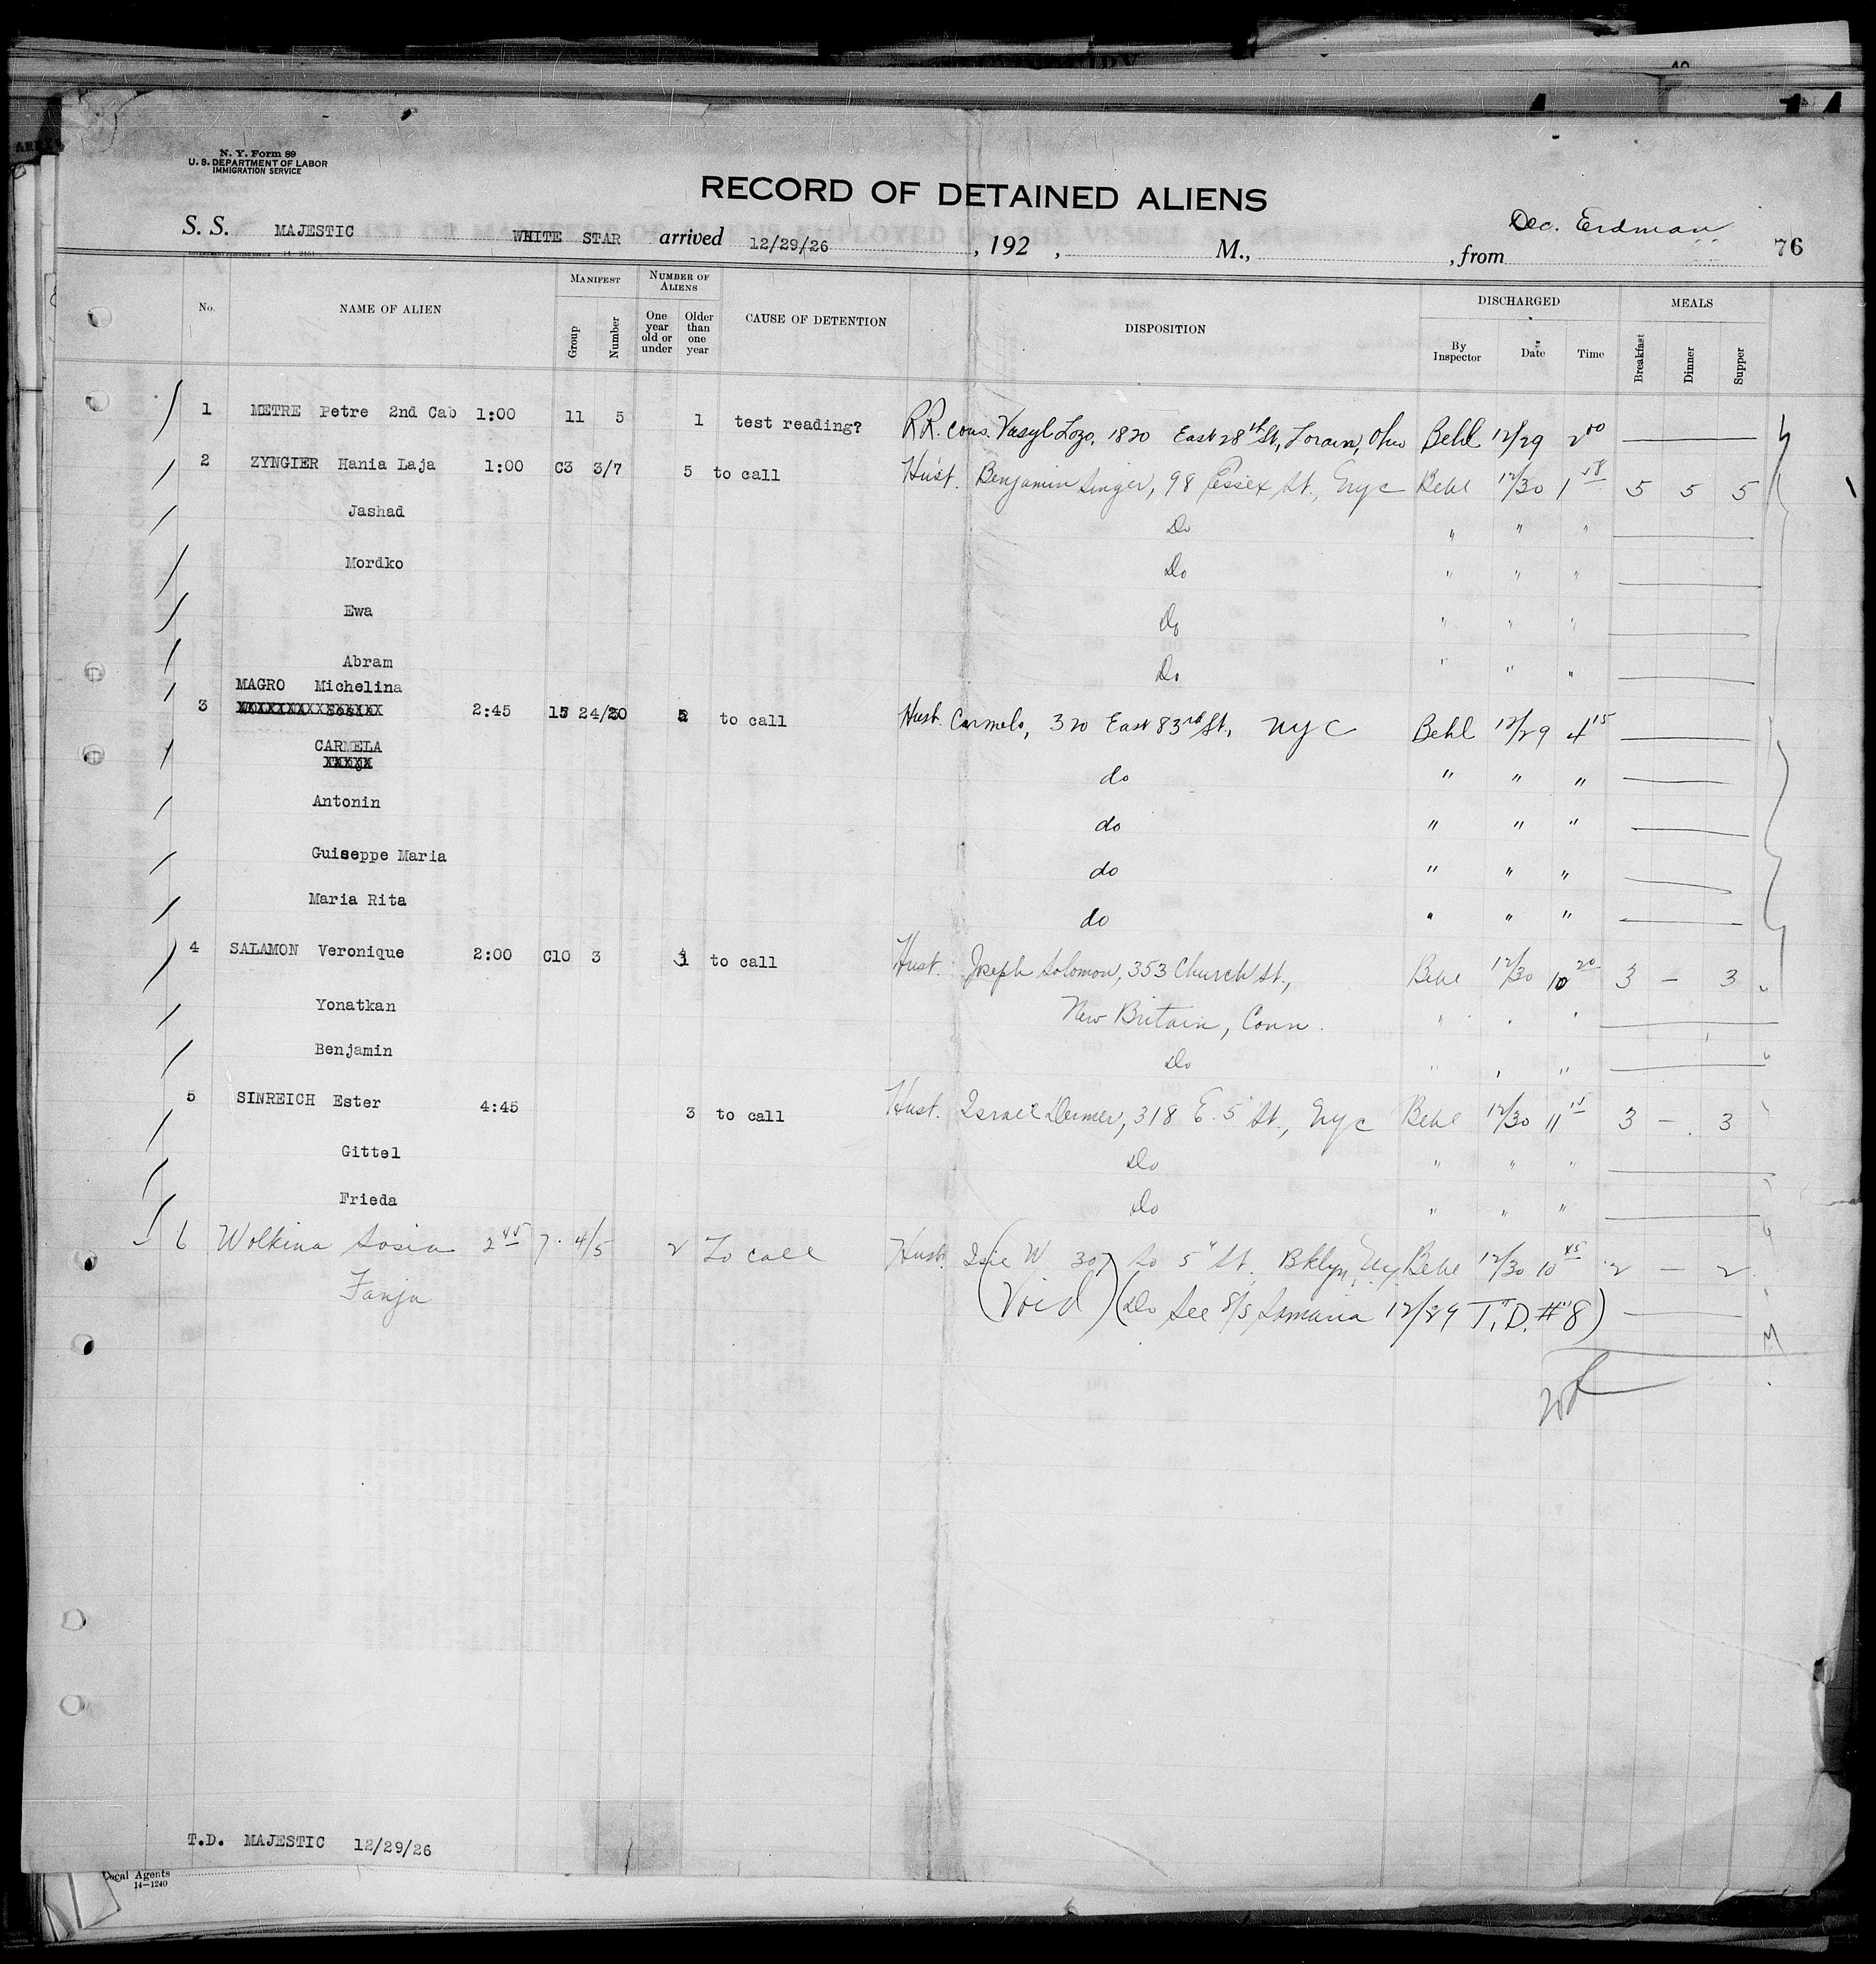 N. Y. Form 89
U. S. DEPARTMENT OF LABOR
IMMIGRATION SERVICE
RECORD OF DETAINED ALIENS
Dec. Erdman
S. S. MAJESTIC WHITE STAR arrived 12/29/26, 192 , M., , from 76
No. NAME OF ALIEN MANIFEST Group Number NUMBER OF ALIENS One year old or under Older than one year CAUSE OF DETENTION DISPOSITION DISCHARGED By Inspector Date Time MEALS Breakfast Dinner Supper
1 METRE Petre 2nd Cab 1:00 11 5 1 test reading? RR. cous. Vasyl Lozo, 1820 East 28th St, Lorain, Ohio Behl 12/29 2 00
2 ZYNGIER Hania Laja 1:00 C3 3/7 5 to call Hust. Benjamin Singer, 98 Essex St., NYC Behl 12/30 1 18 5 5 5
Jashad Do " " "
Mordko Do " " "
Ewa Do " " "
Abram Do " " "
MAGRO Michelina
3 2:45 15 24/20 to call Hust. Carmelo, 320 East 83rd St, NYC Behl 12/29 4 15
CARMELA do " " "
Antonin do " " "
Guiseppe Maria do " " "
Maria Rita do " " "
4 SALAMON Veronique 2:00 C10 3 to call Hust. Joseph Solomon, 353 Church St., Behl 12/30 10 20 3 — 3
Yonatkan New Britain, Conn. " " "
Benjamin Do " " "
5 SINREICH Ester 4:45 3 to call Hust. Israel 318 E. 5" St., NYC Behl 12/30 11 15 3 — 3
Gittel Do " " "
Frieda Do " " "
6 Wolkina Sosia 2 45 7 4/5 2 To call Hust. W 307 So 5" St. Bklyn, NY Behl 12/30 10 45 2 — 2
Fanja (Void) (Do See S/S Samaria 12/29 T.D. #8)
T.D. MAJESTIC 12/29/26
Legal Agents
14—1240